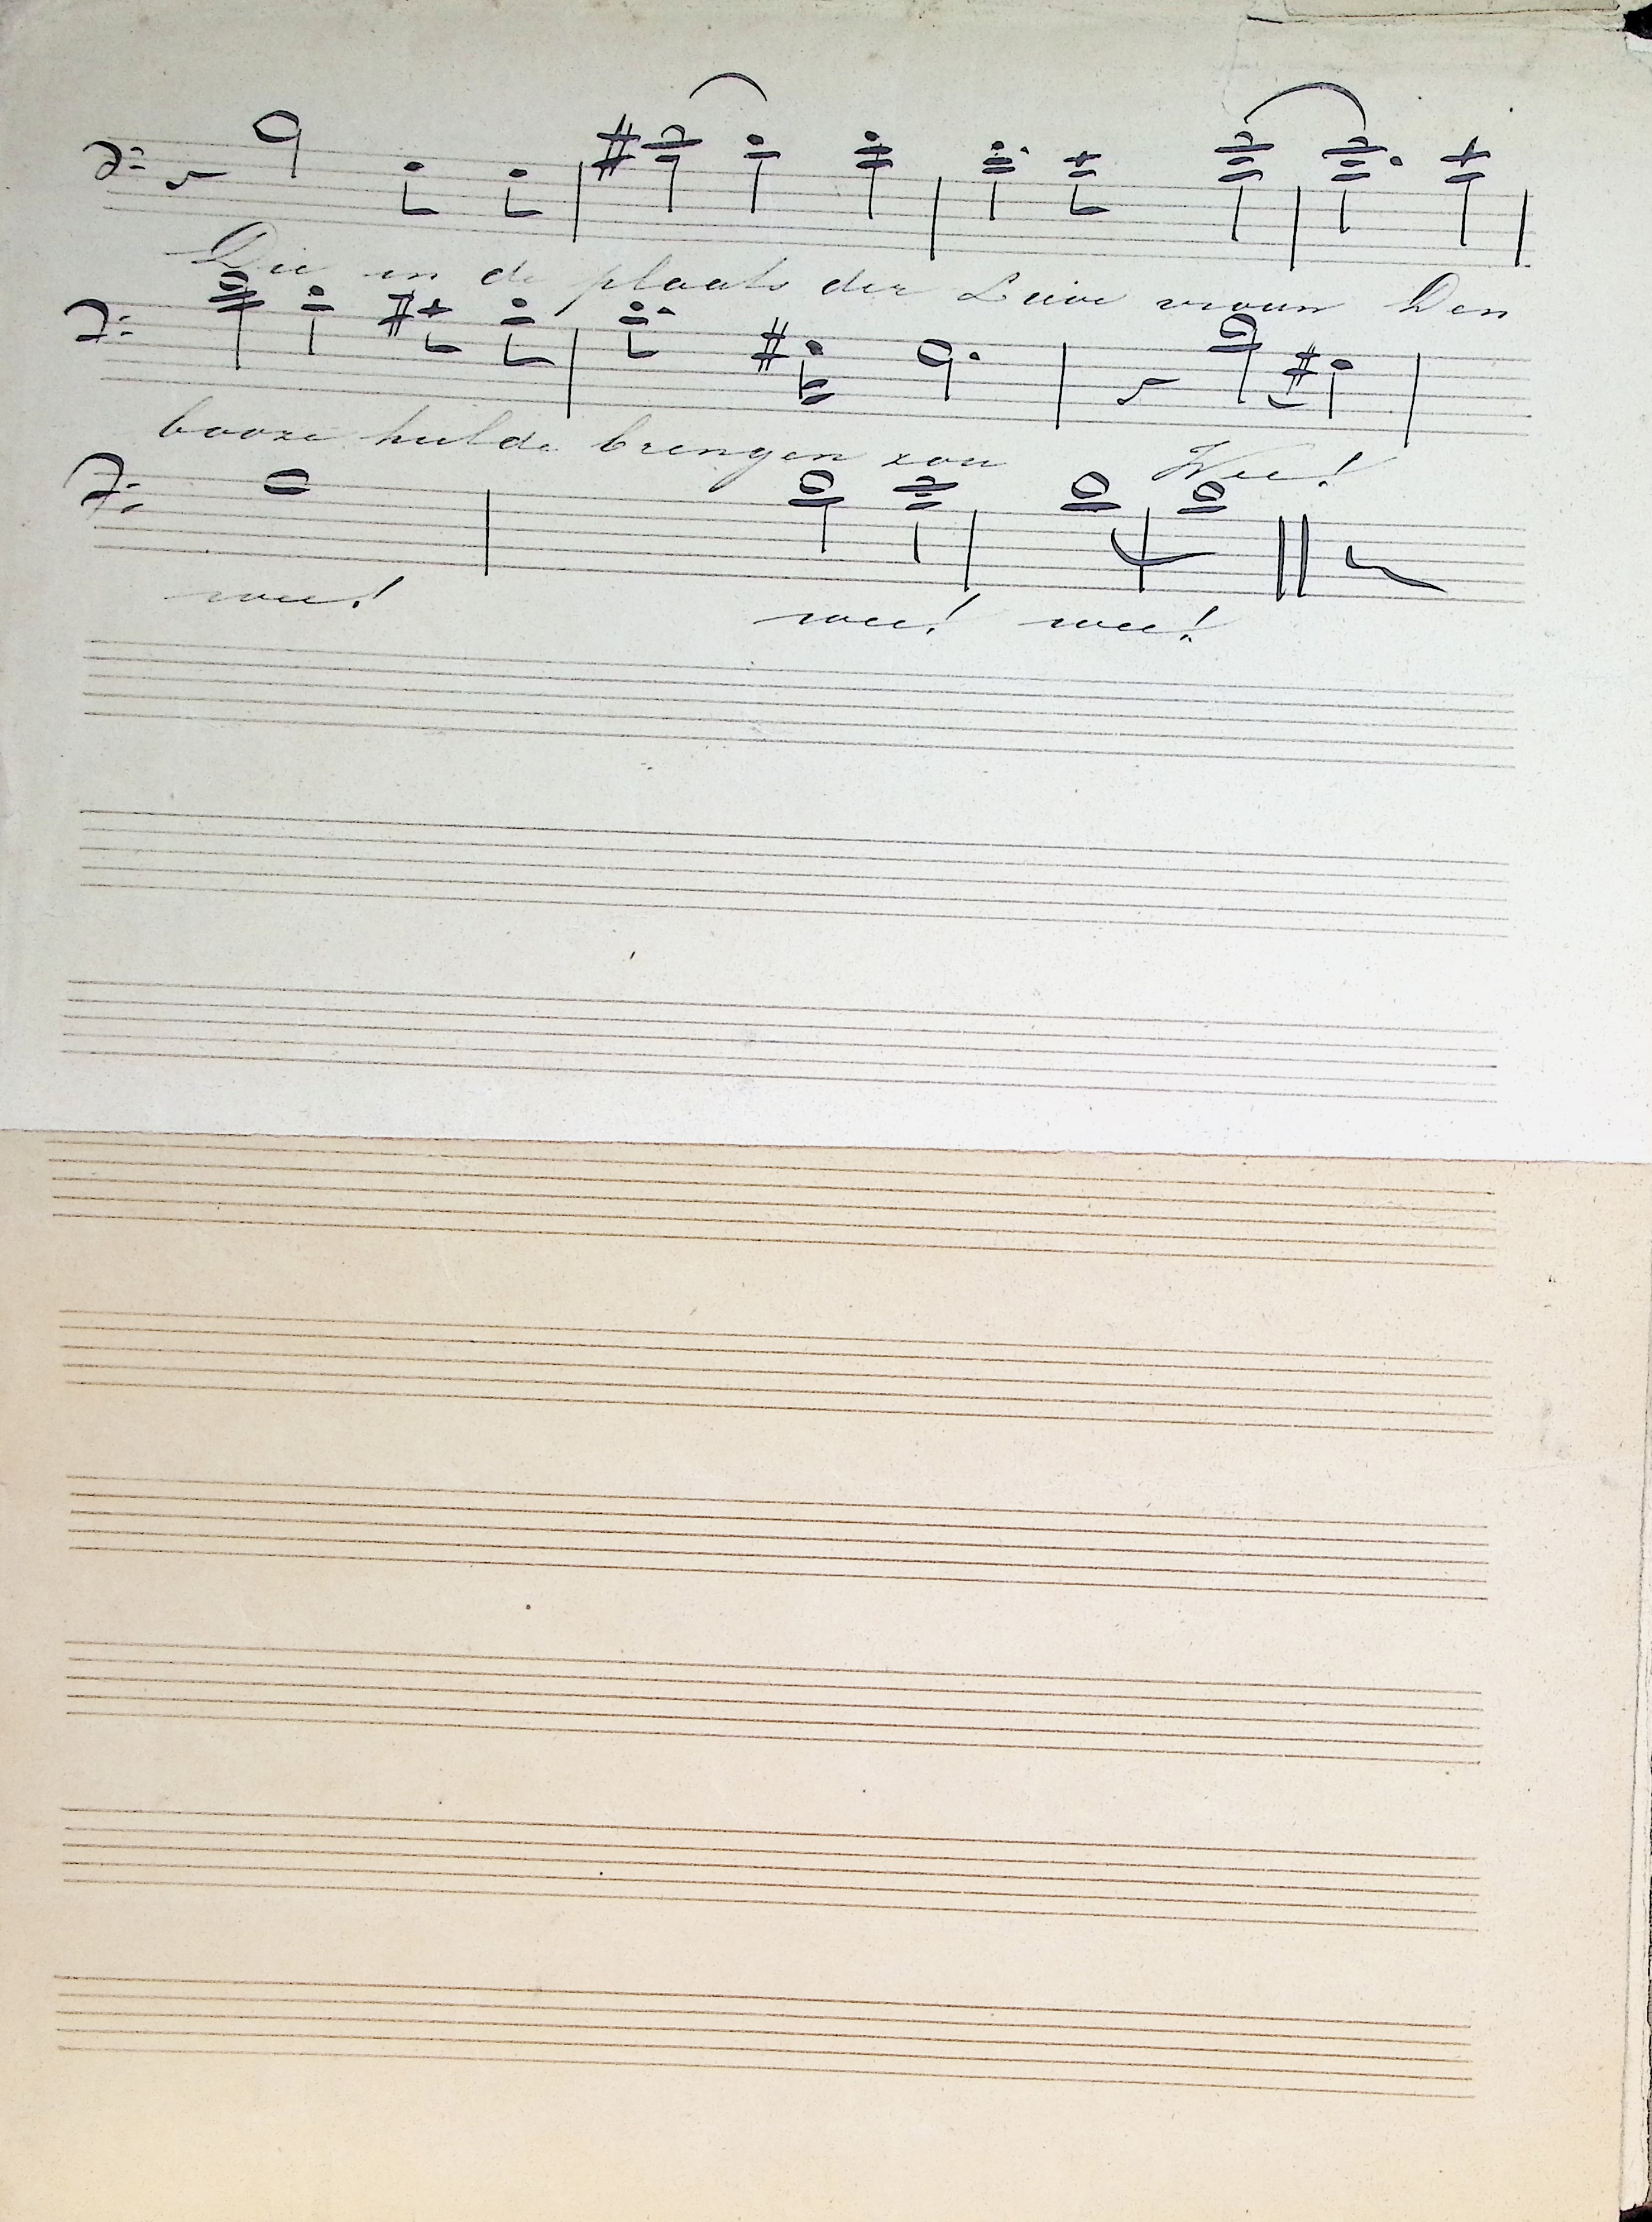 Die in de plaats der Lieve vrouw Den
booze hulde brengen zou Wee!
wee! wee! wee!